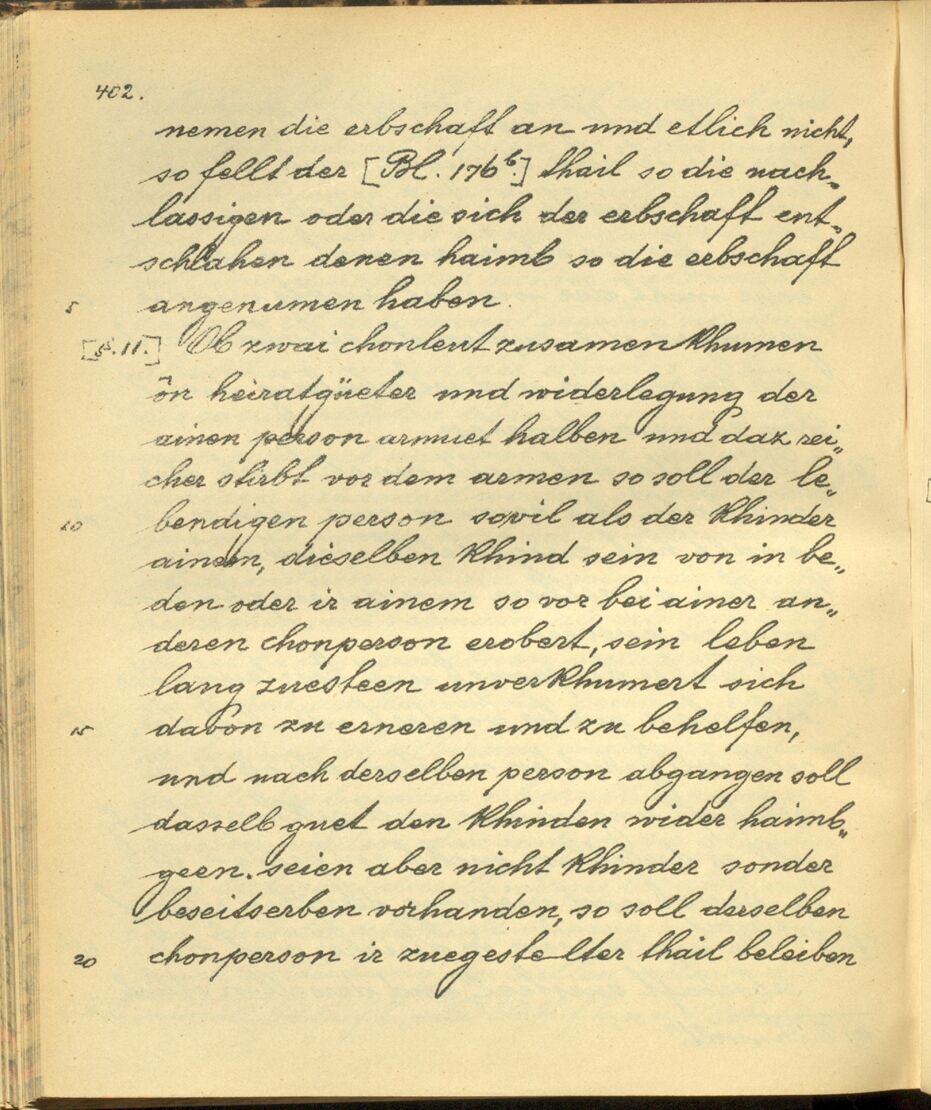 402.
nemen die erbschaft an und etlich nicht,
so fellt der [Bl. 176b.] thail so die nach„
lassigen oder die sich der erbschaft ent„
schlahen denen haimb so die erbschaft
5 angenumen haben.
[§. 11.] Ob zwai chonleut zusamen khumen
ôn heiratgüeter und widerlegung der
ainen person armuet halben und daz rei„
cher stirbt vor dem armen so soll der le„
10 bendigen person sovil als der khinder
ainem, dieselben khind sein von in be„
den oder ir ainem so vor bei ainer an„
deren chonperson erobert, sein leben
lang zuesteen unverkhumert sich
15 davon zu erneren und zu behelfen,
und nach derselben person abgangen soll
dasselb guet den khinden wider haimb„
geen. seien aber nicht khinder sonder
beseitserben vorhanden, so soll derselben
20 chonperson ir zuegestelter thail beleiben